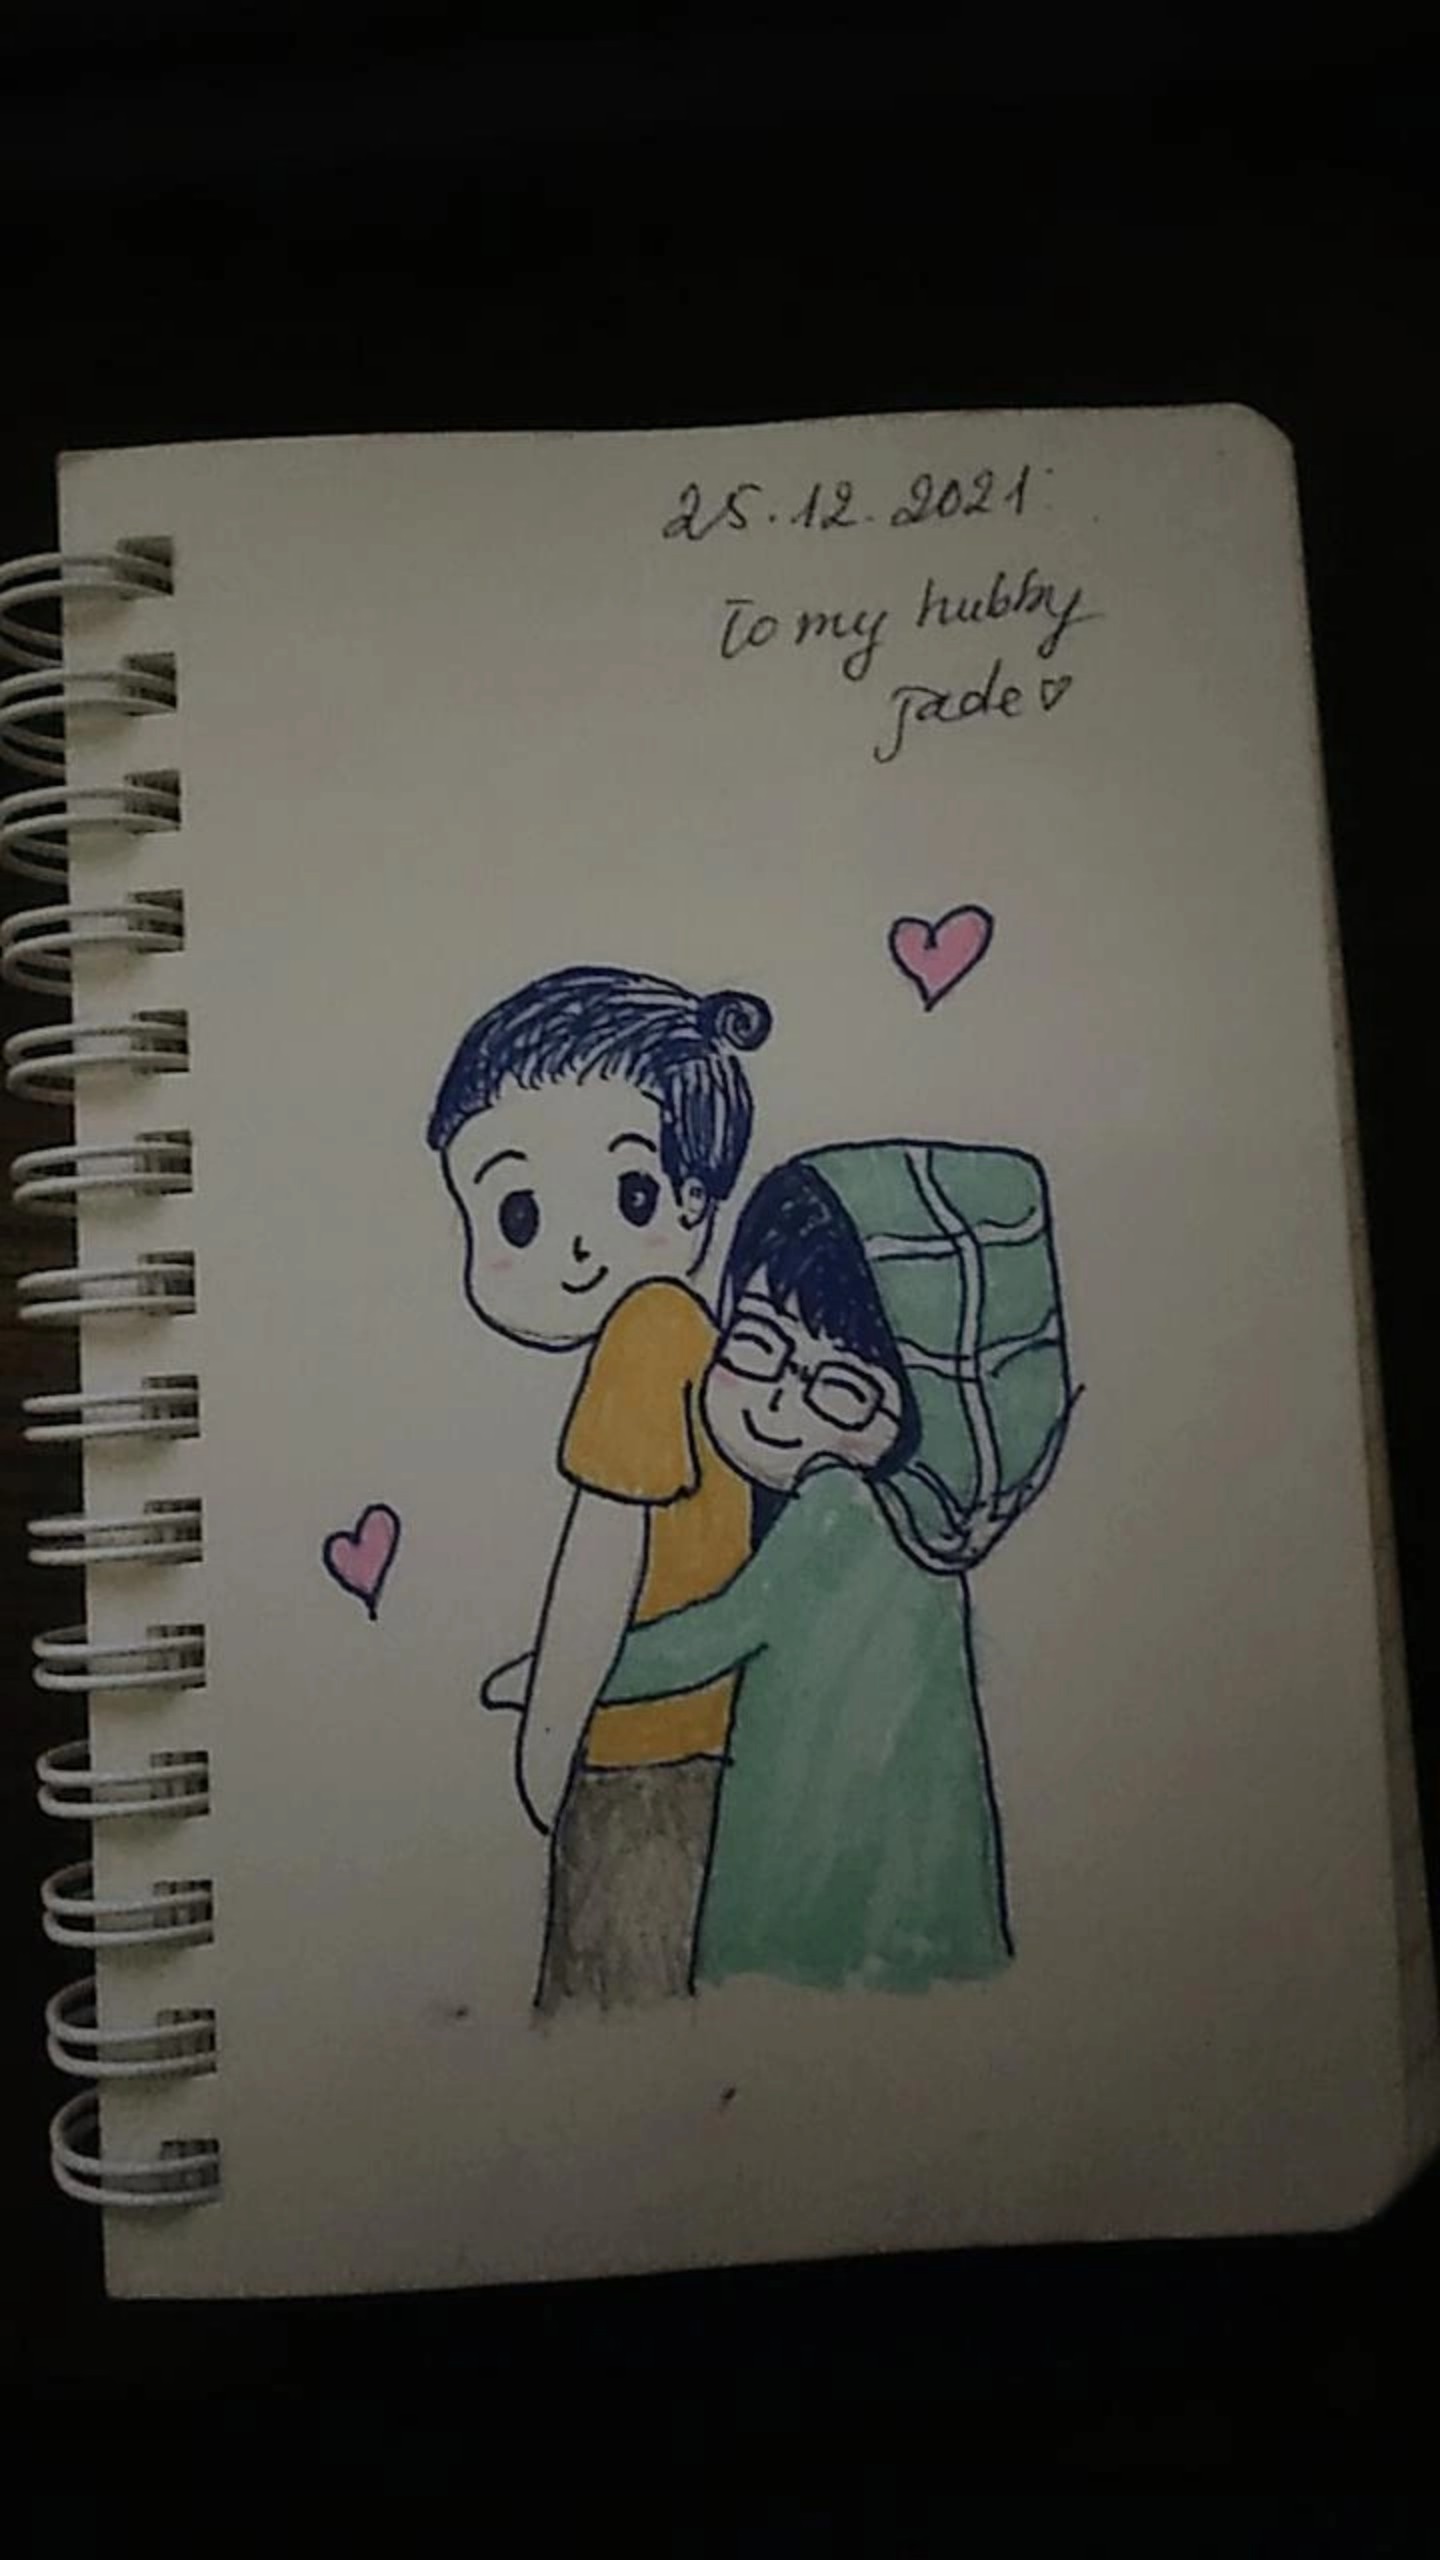 25.12.2021
To my hubby
Jade ♡